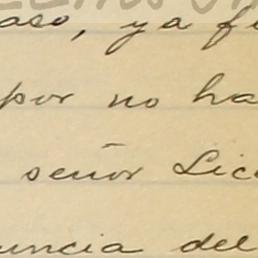 aso, ya f
por no ha
señor Lic
uncia del